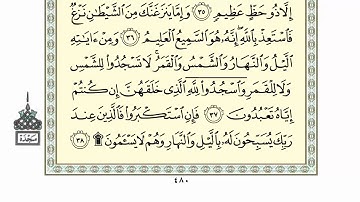 إِلَّا ذُو حَظٍّ عَظِيمٍ ٣٥ وَإِمَّا يَنزَغَنَّكَ مِنَ ٱلشَّيْطَٰنِ نَزْغٌ
فَٱسْتَعِذْ بِٱللَّهِ إِنَّهُۥ هُوَ ٱلسَّمِيعُ ٱلْعَلِيمُ ٣٦ وَمِنْ ءَايَٰتِهِ
ٱلَّيْلُ وَٱلنَّهَارُ وَٱلشَّمْسُ وَٱلْقَمَرُ لَا تَسْجُدُوا۟ لِلشَّمْسِ
وَلَا لِلْقَمَرِ وَٱسْجُدُوا۟ لِلَّهِ ٱلَّذِى خَلَقَهُنَّ إِن كُنتُمْ
إِيَّاهُ تَعْبُدُونَ ٣٧ فَإِنِ ٱسْتَكْبَرُوا۟ فَٱلَّذِينَ عِندَ
رَبِّكَ يُسَبِّحُونَ لَهُۥ بِٱلَّيْلِ وَٱلنَّهَارِ وَهُمْ لَا يَسْـَٔمُونَ ۩ ٣٨
سجدة
٤٨٠